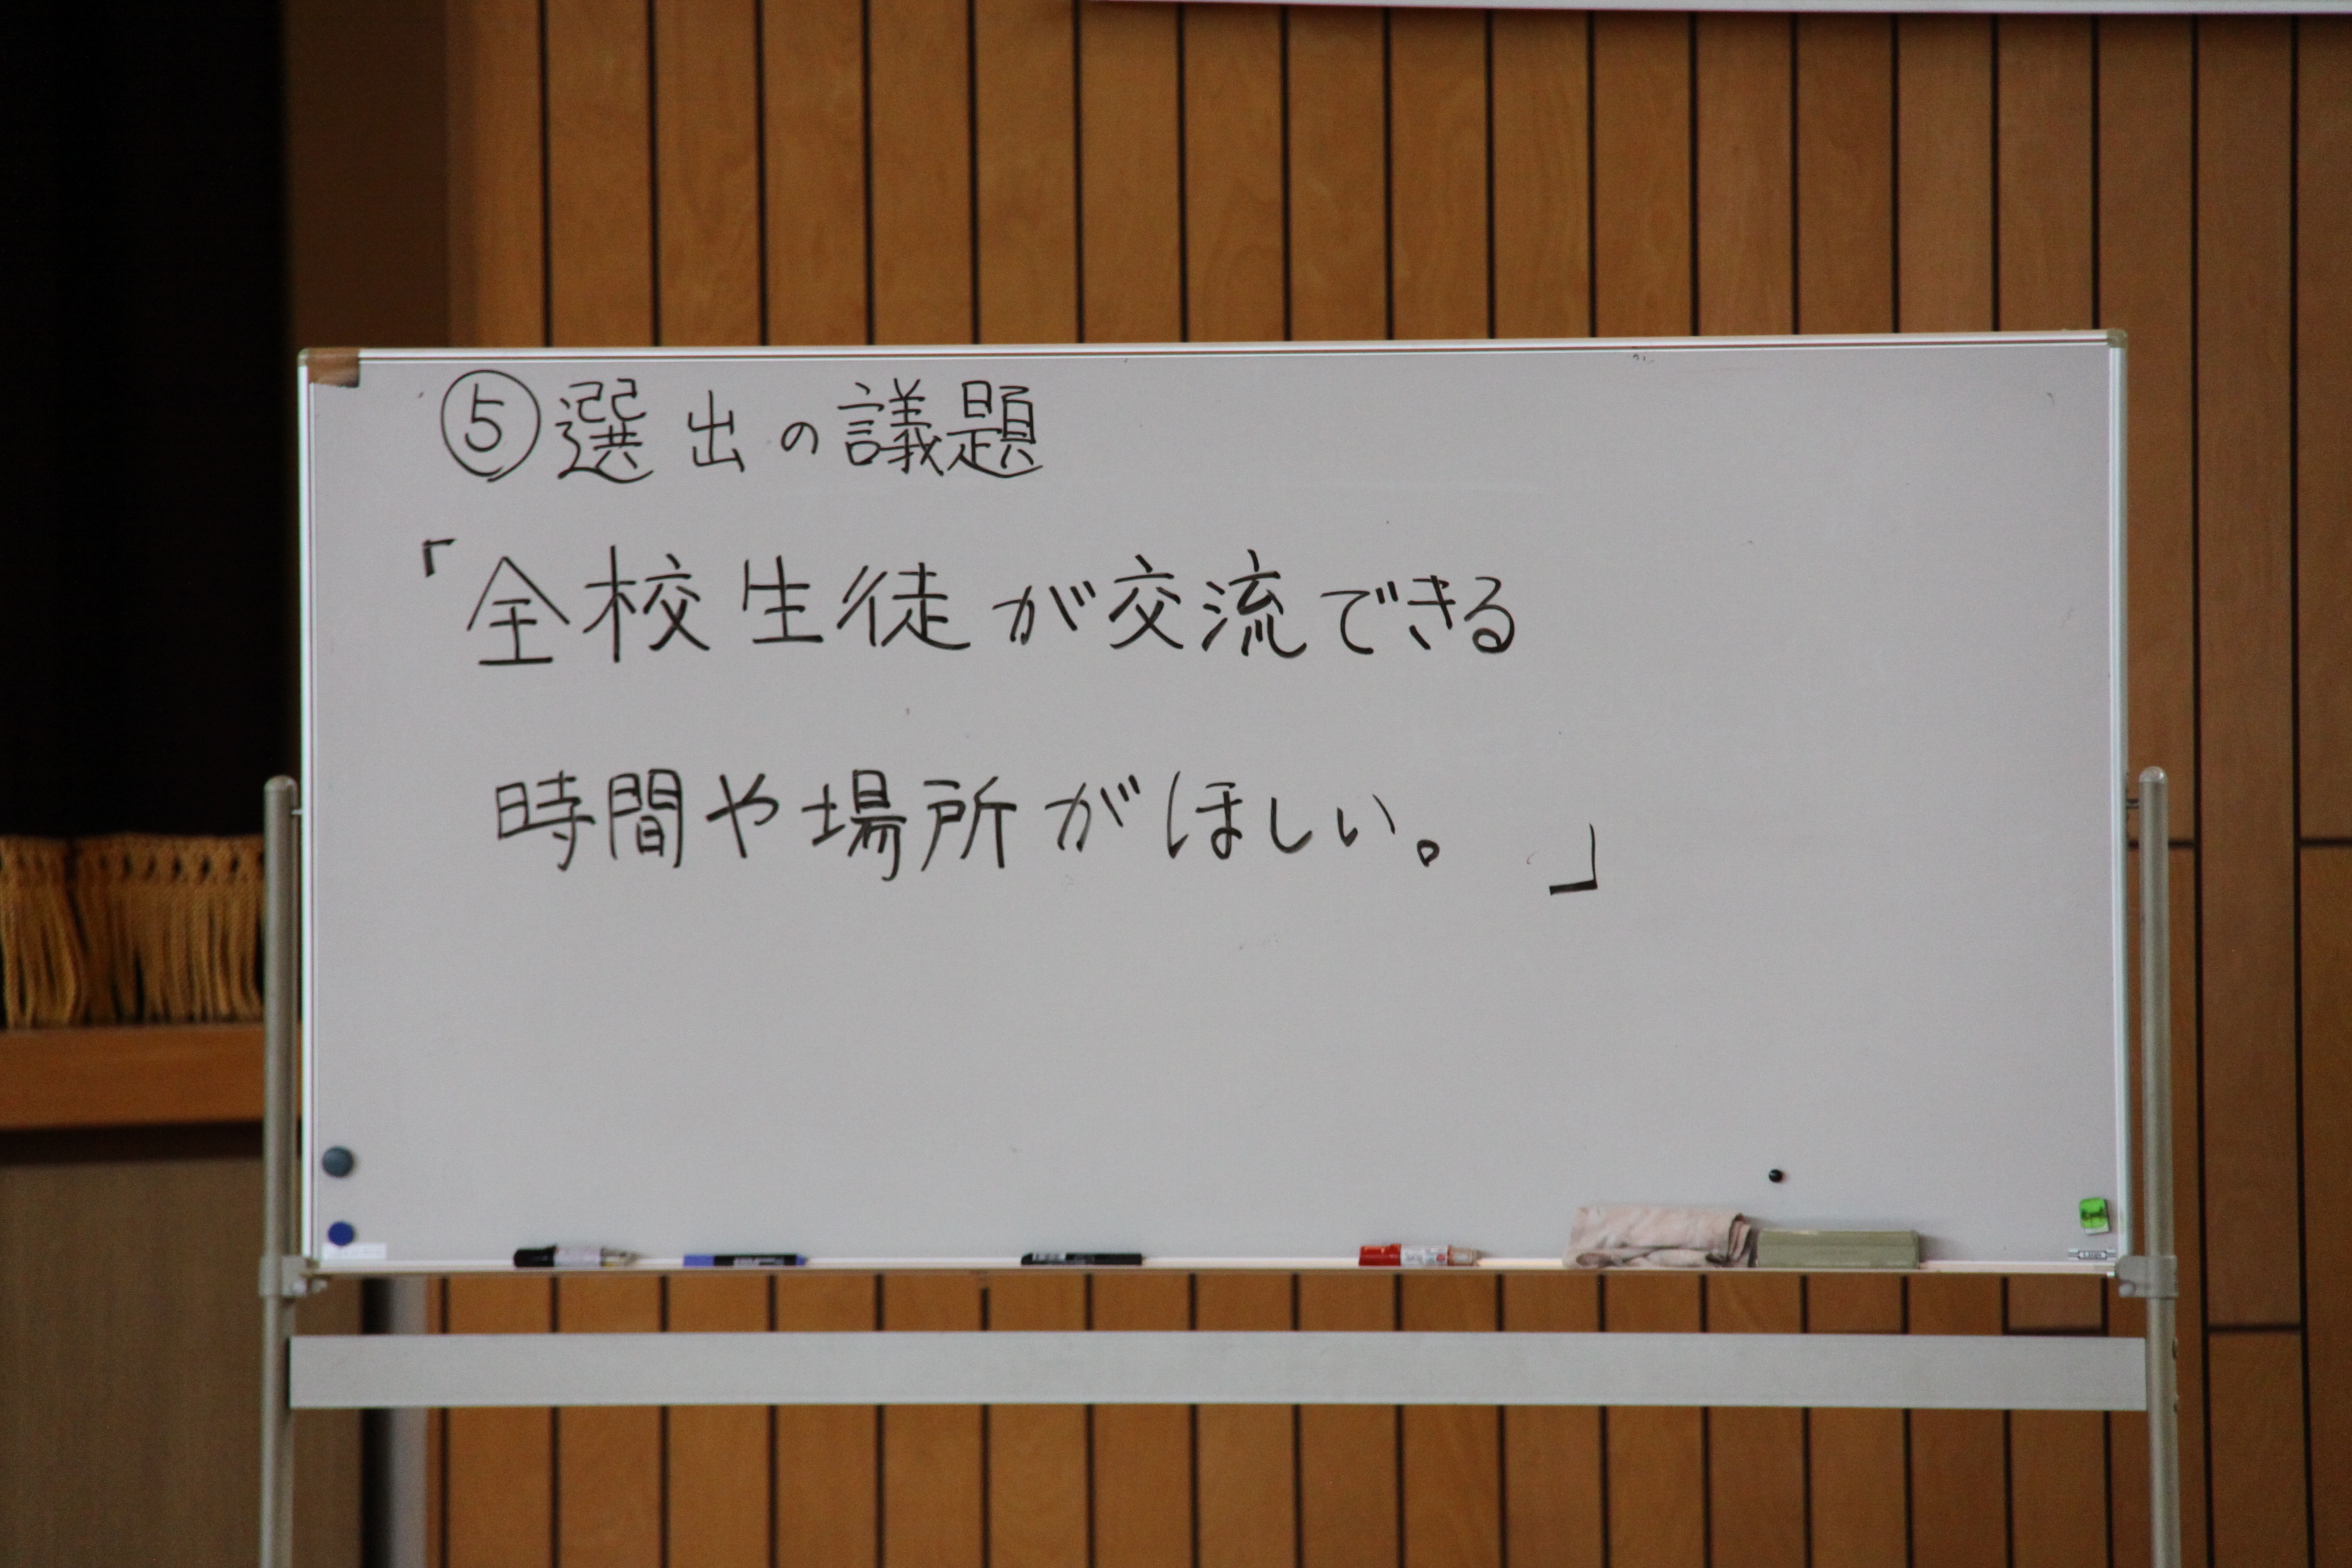 ⑤選出の議題
「全校生徒が交流できる
時間や場所がほしい。」